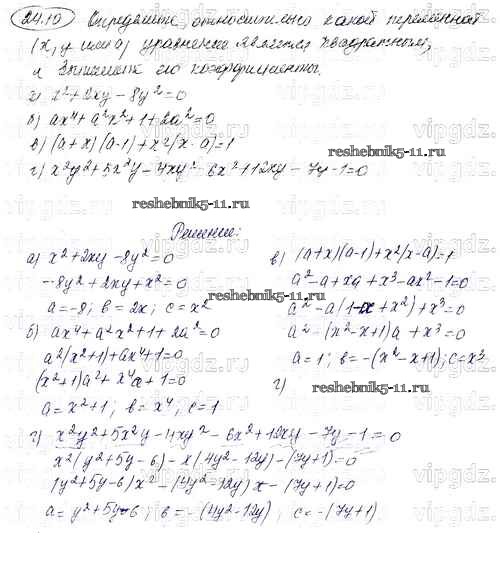 24.19 Определите, относительно какой переменной
(x, y или a) уравнение является квадратным,
и запишите его коэффициенты.
а) x²+2xy-8y²=0
б) ax⁴+a²x²+1+2a²=0
в) (a+x)(a-1)+x²(x-a)=1
г) x²y²+5x²y-4xy²-6x²+12xy-7y-1=0
reshebnik5-11.ru
Решение:
а) x²+2xy-8y²=0
-8y²+2xy+x²=0
a=-8; b=2x; c=x²
б) ax⁴+a²x²+1+2a²=0
a²(x²+1)+ax⁴+1=0
(x²+1)a²+x⁴a+1=0
a=x²+1; b=x⁴; c=1
в) (a+x)(a-1)+x²(x-a)=1
a²-a+xa+x³-ax²-1=0
reshebnik5-11.ru
a²-a(1-x+x²)+x³=0
a²-(x²-x+1)a+x³=0
a=1; b=-(x²-x+1); c=x³
г)
reshebnik5-11.ru
г) x²y²+5x²y-4xy²-6x²+12xy-7y-1=0
x²(y²+5y-6)-x(4y²-12y)-(7y+1)=0
(y²+5y-6)x²-(4y²-12y)x-(7y+1)=0
a=y²+5y-6; b=-(4y²-12y), c=-(7y+1)
vipgdz.ru